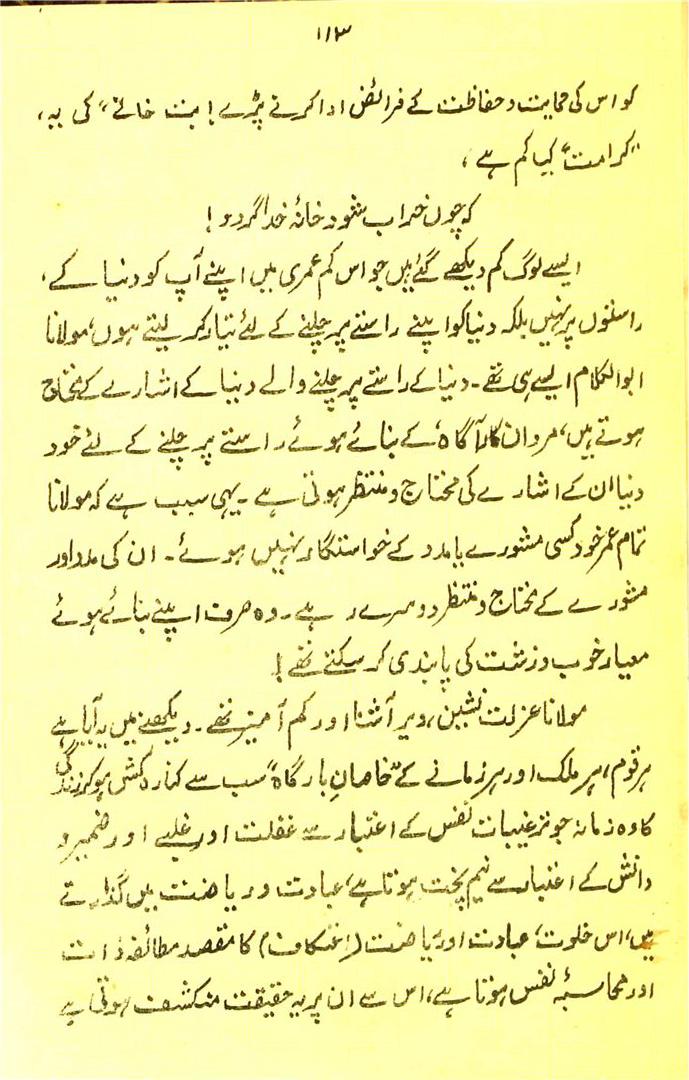 ۱۱۳
کو اس کی حمایت و حفاظت کے فرائض ادا کرنے پڑے! بت خانے، کی یہ،
"کرامت" کیا کم ہے،
کہ چوں خراب شود خانۂ خدا گردد!
ایسے لوگ کم دیکھے گئے ہیں جو اس کم عمری میں اپنے آپ کو دنیا کے،
راستوں پر نہیں بلکہ دنیا کو اپنے راستے پر چلنے کے لئے تیار کر لیتے ہوں، مولانا
ابوالکلام ایسے ہی تھے۔ دنیا کے راستے پر چلنے والے دنیا کے اشارے کے محتاج
ہوتے ہیں، مردان کارآگاہ، کے بنائے ہوئے راستے پر چلنے کے لئے خود
دنیا ان کے اشارے کی محتاج و منتظر ہوتی ہے۔ یہی سبب ہے کہ مولانا
تمام عمر خود کسی مشورے یا مدد کے خواستگار نہیں ہوئے۔ ان کی مدد اور
مشورے کے محتاج و منتظر دوسرے رہے۔ وہ صرف اپنے بنائے ہوئے
معیار خوب و زشت کی پابندی کر سکتے تھے!
مولانا عزلت نشین، دیر آشنا اور کم آمیز تھے۔ دیکھنے میں یہ آیا ہے
ہر قوم، ہر ملک اور ہر زمانے کے "خاصانِ بارگاہ" سب سے کنارہ کش ہو کر زندگی
کا وہ زمانہ جو ترغیبات نفس کے اعتبار سے غفلت اور غلبے اور ضمیر و
دانش کے اعتبار سے نیم پخت ہوتا ہے، عبادت و ریاضت میں گذارتے
ہیں، اس خلوت، عبادت اور ریاضت (اعتکاف) کا مقصد مطالعۂ ذات
اور محاسبۂ نفس ہوتا ہے، اس سے ان پر یہ حقیقت منکشف ہوتی ہے